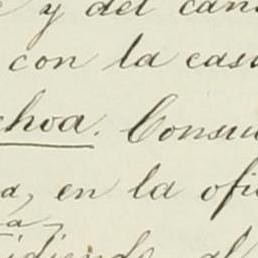 y del can
con la casa
choa. Consu
a, en la ofi
a,
idiendo al